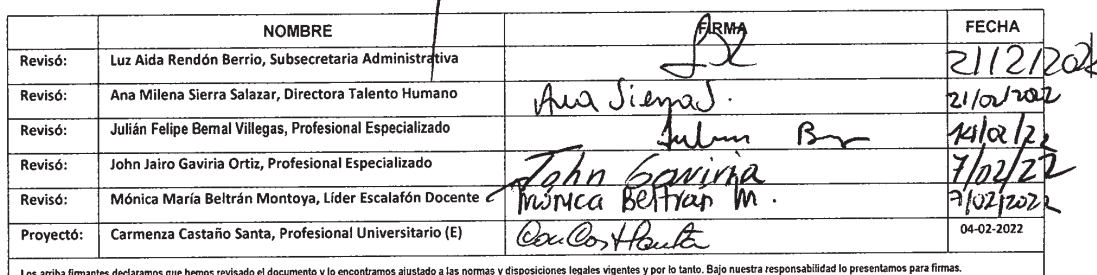 NOMBRE FIRMA FECHA
Revisó: Luz Aida Rendón Berrio, Subsecretaria Administrativa 21/2/202
Revisó: Ana Milena Sierra Salazar, Directora Talento Humano Ana Sierra S. 21/02/2022
Revisó: Julián Felipe Bernal Villegas, Profesional Especializado Julian B 14/02/22
Revisó: John Jairo Gaviria Ortiz, Profesional Especializado John Gaviria 7/02/22
Revisó: Mónica María Beltrán Montoya, Líder Escalafón Docente Mónica Beltrán M. 7/02/2022
Proyectó: Carmenza Castaño Santa, Profesional Universitario (E) 04-02-2022
Los arriba firmantes declaramos que hemos revisado el documento y lo encontramos ajustado a las normas y disposiciones legales vigentes y por lo tanto. Bajo nuestra responsabilidad lo presentamos para firmas.